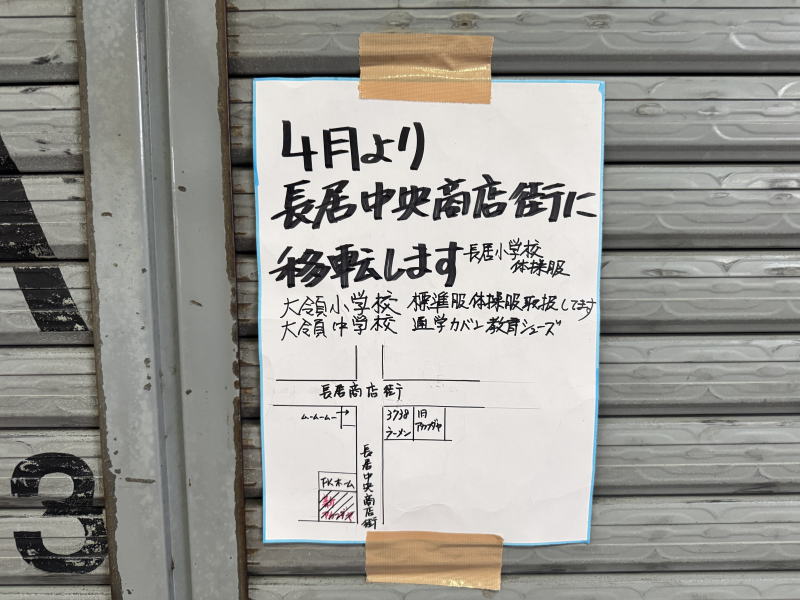 4月より
長居中央商店街に
移転します
長居小学校
体操服
大領小学校 標準服体操服取扱してます
大領中学校 通学カバン教育シューズ
長居商店街
ムームームー
3738
ラーメン
旧
長居中央商店街
FKホーム
新
3